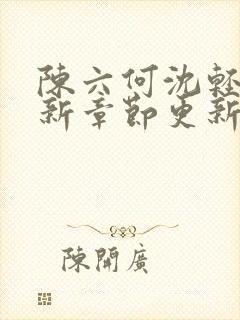 陳六何沈輕
新章節更新
陳開廣